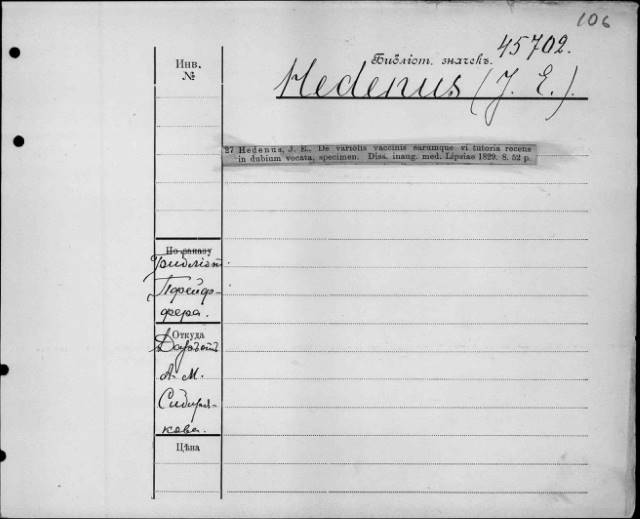 106
45702.
Инв.
№
Библіот. значекъ.
Hedenus (J. E.).
27 Hedenus, J. E., De variolis vaccinis earumque vi tutoria recens
in dubium vocata, specimen. Diss. inaug. med. Lipsiae 1829. 8. 52 p.
По заказу
Библіот.
Пфейф-
фера.
Откуда
А. М.
Сибиря-
кова.
Цѣна